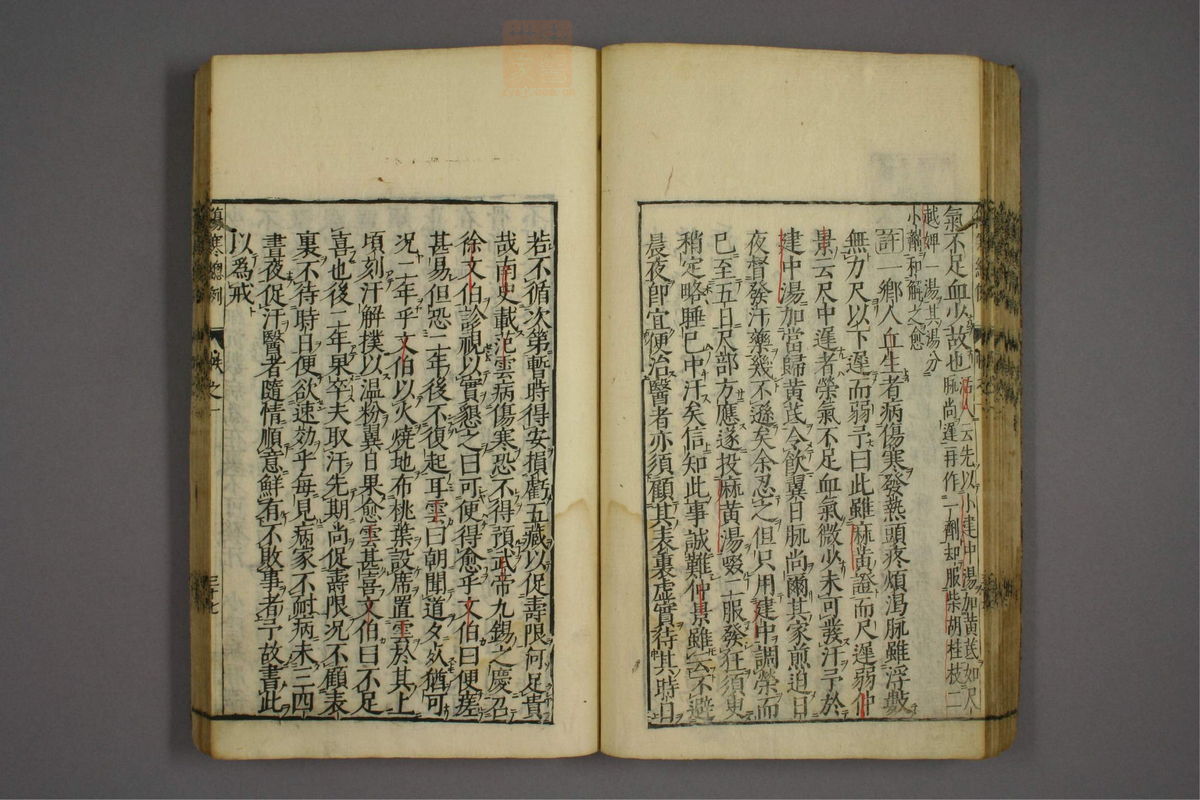 氣不足血少故也活人云先以小建中湯加黃芪如尺
脉尚遲再作一劑却服柴胡桂枝二
越婢一湯其湯分
小劑和解之愈
許一鄉人血生者病傷寒發熱頭疼煩渴脉雖浮數
無力尺以下遲而弱予曰此雖麻黃證而尺遲弱仲
景云尺中遲者榮氣不足血氣微少未可發汗予於
建中湯加當歸黃芪令飲翼日脉尚爾其家煎迫日
夜督發汗藥幾不遜矣余忍之但只用建中調榮而
已至五日尺部方應遂投麻黃湯啜二服發狂須臾
稍定略睡已中汗矣信知此事誠難仲景雖云不避
晨夜即宜便治醫者亦須顧其表裏虛實待其時日
若不循次第暫時得安損虧五藏以促壽限何足貴
哉南史載范雲病傷寒恐不得預武帝九錫之慶召
徐文伯診視以實懇之曰可便得愈乎文伯曰便差
甚易但恐二年後不復起耳雲曰朝聞道夕死猶可
况二年乎文伯以火燒地布桃葉設席置雲於其上
頃刻汗解撲以温粉翼日果愈雲甚喜文伯曰不足
喜也後二年果卒夫取汗先期尚促壽限况不顧表
裏不待時日便欲速効乎每見病家不耐病未三四
晝夜促汗醫者隨情順意鮮有不敗事者予故書此
以爲戒
傷寒總例
之一
三十七